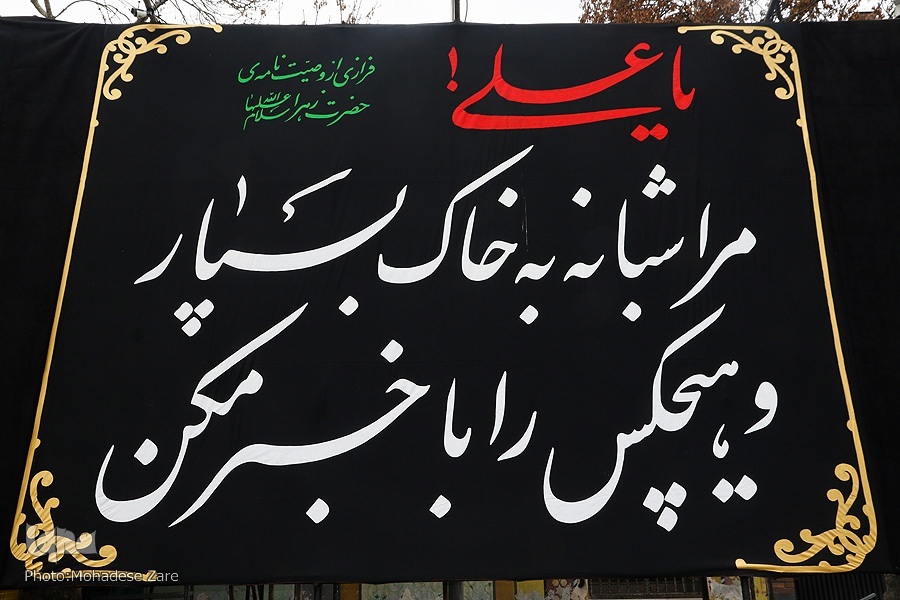 یا علی!
فرازی از وصیّت نامه‌ی
حضرت زهرا سلام الله علیها
مرا شبانه به خاک بسپار
و هیچکس را با خبر مکن
Photo:Mohadese Zare